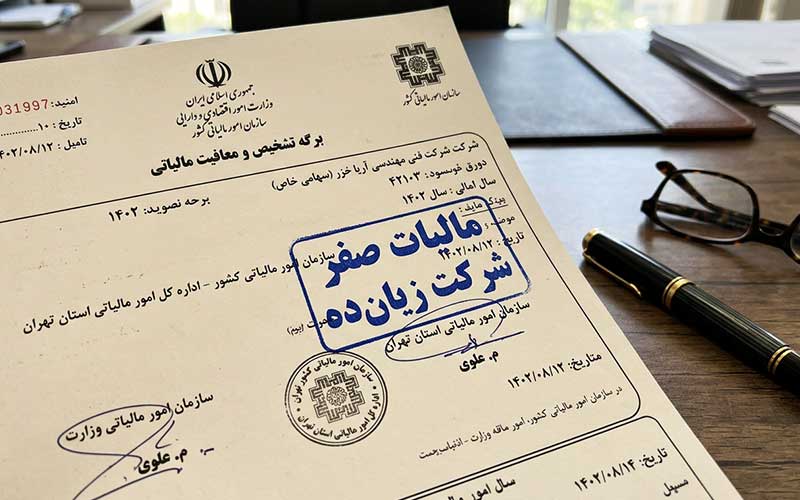 امنید: 031997
تاریخ : ۱۰............
تامیل : ۱۴۰۲/۰۸/۱۲
جمهوری اسلامی ایران
وزارت امور اقتصادی و دارایی
سازمان امور مالیاتی کشور
سازمان امور مالیاتی کشور
برگه تشخیص و معافیت مالیاتی
شرکت شرکت فنی مهندسی آریا خزر (سهامی خاص)
دورق خوسسود: ۴۲۱۰۳
سال امالی : سال ۱۴۰۲
برحه نصوید: ۱۴۰۲
تاریخ : ۱۴۰۲/۰۸/۱۲
مالیات صفر
شرکت زیان‌ده
سازمان امور مالیاتی کشور - اداره کل امور مالیاتی استان تهران
سازمان امور مالیاتی استان تهران
م. علوی
متاریخ: ۱۴۰۲/۰۸/۱۲
سازمان امور مالیاتی کشور تهران
اداره کل امور مالیاتی استان تهران
سازمان امور مالیاتی وزارت
م. علوی
در سازمان امور مالیاتی کشور، امور مافه وزارت -
تاریخ: ۱۴۰۲/۰۸/۱۴
سازمان امور مالیاتی
سال امور
مسیل